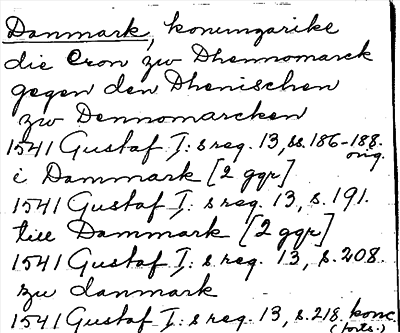 Danmark, konungarike
die Cron zw Dhennomarck
gegen den Dhenischen
zw Dennomarcken
1541 Gustaf I: s reg. 13, ss. 186-188.
orig.
i Dammark [2 ggr]
1541 Gustaf I: s reg. 13, s. 191.
till Dammark [2 ggr]
1541 Gustaf I: s reg. 13, s. 208.
zu danmark
1541 Gustaf I: s reg. 13, s. 218. konc.
(forts.)